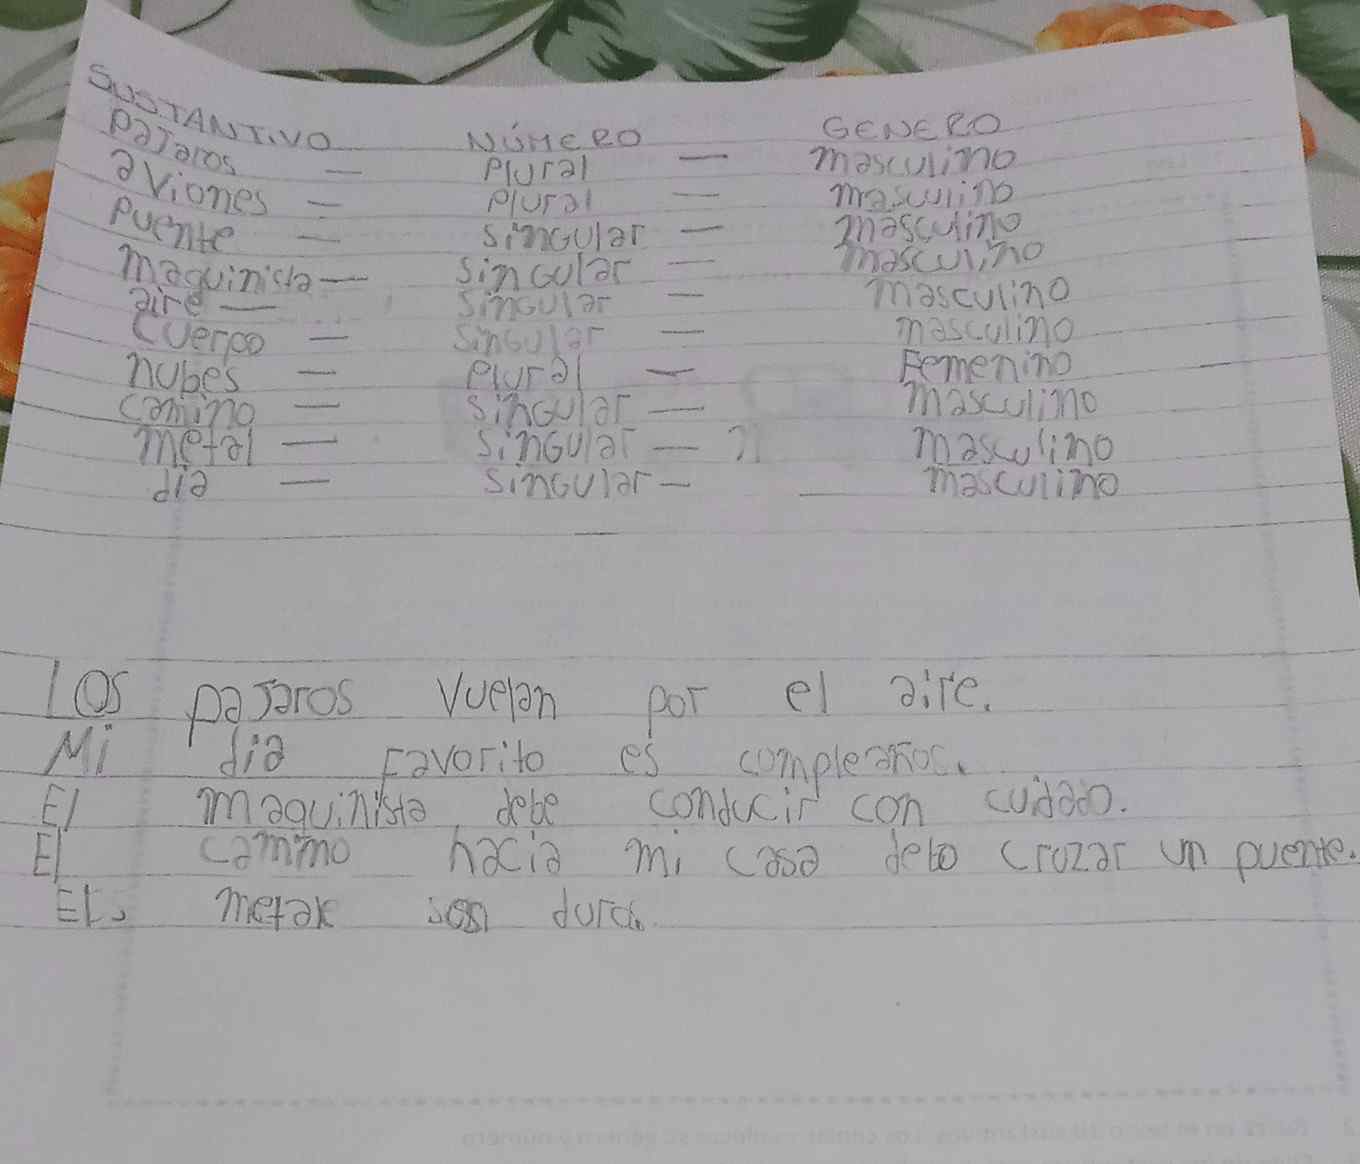 SUSTANTIVO NÚMERO GENERO
Pajaros — Plural — masculino
aviones — Plural — masculino
Puente — singular — masculino
maquinista — singular — masculino
aire — singular — masculino
cuerpo — singular — masculino
nubes — plural — Femenino
camino — singular — masculino
metal — singular — masculino
dia — singular — masculino
Los pajaros vuelan por el aire.
Mi dia favorito es compleaños.
El maquinista debe conducir con cuidado.
El camino hacia mi casa debo cruzar un puente.
son